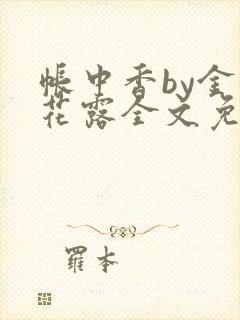 帐中香by金
花露全文免
羅本